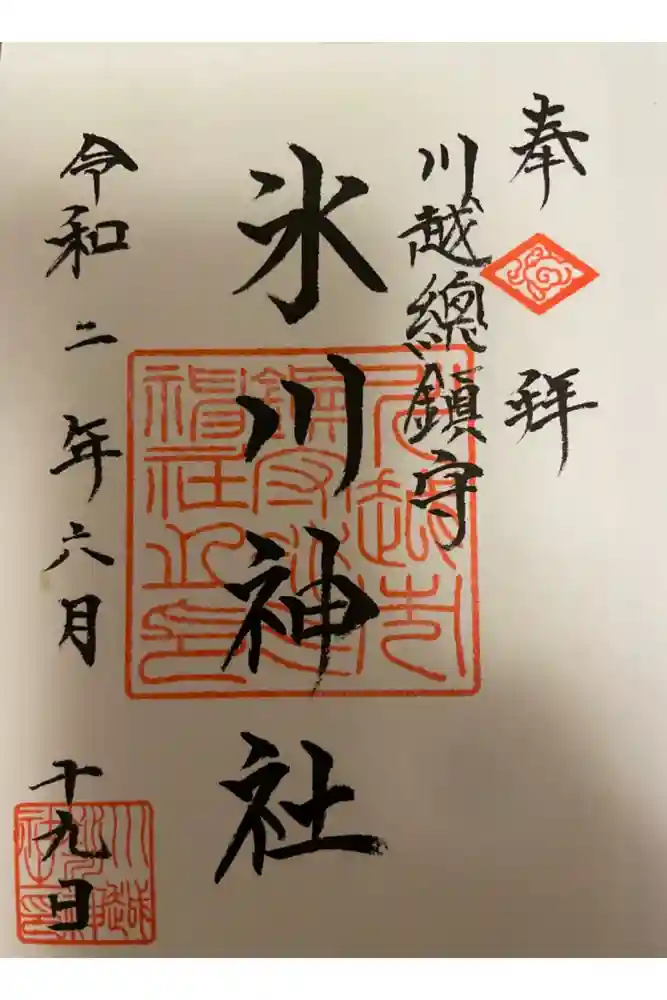 奉拝
川越總鎮守
氷川神社
令和二年六月十九日